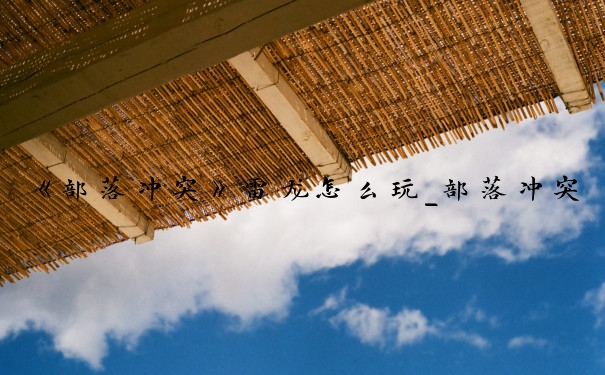 《部落冲突》雷龙怎么玩_部落冲突